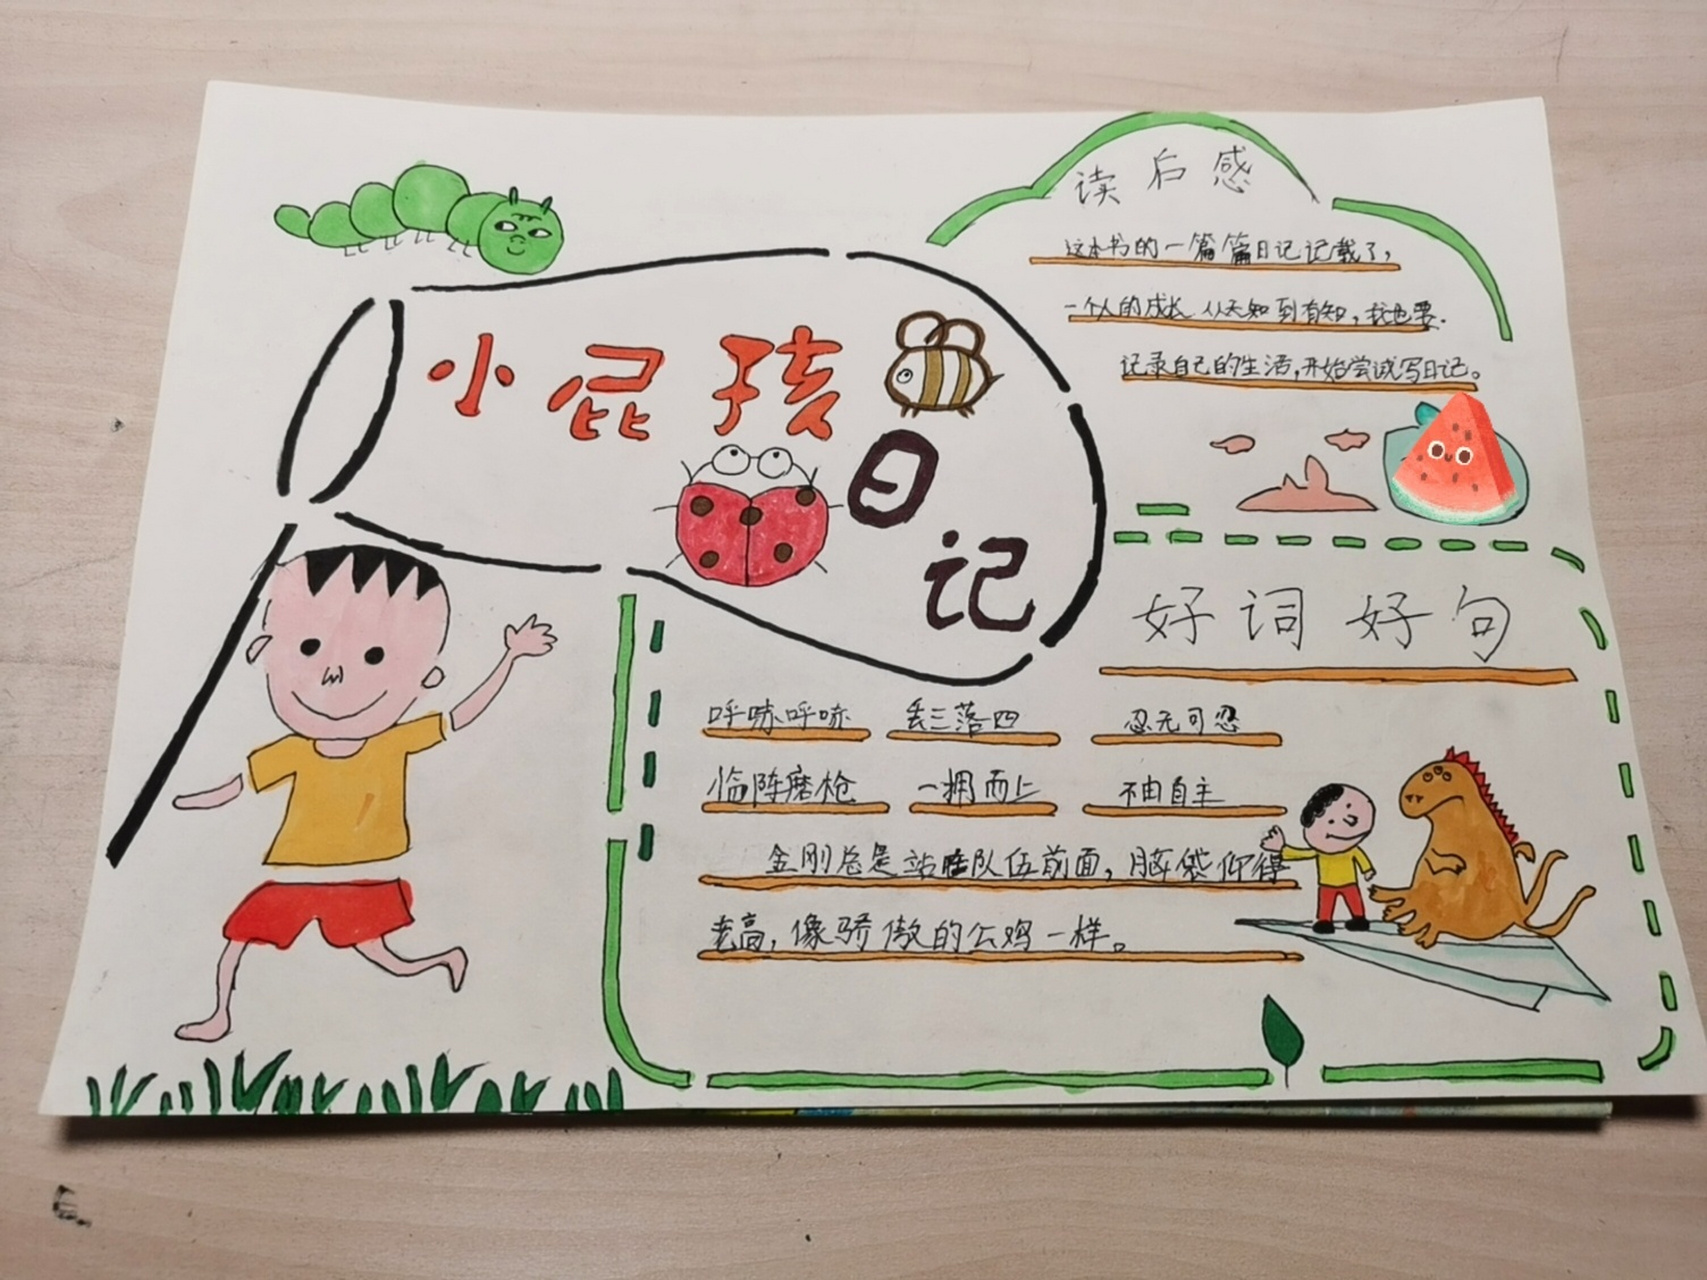 小屁孩
日
记
读后感
这本书的一篇篇日记记载了,
一个人的成长从无知到有知,我也要.
记录自己的生活,开始尝试写日记。
好词好句
呼哧呼哧 丢三落四 忍无可忍
临阵磨枪 一拥而上 不由自主
金刚总是站在队伍前面,脑袋仰得
老高,像骄傲的公鸡一样。